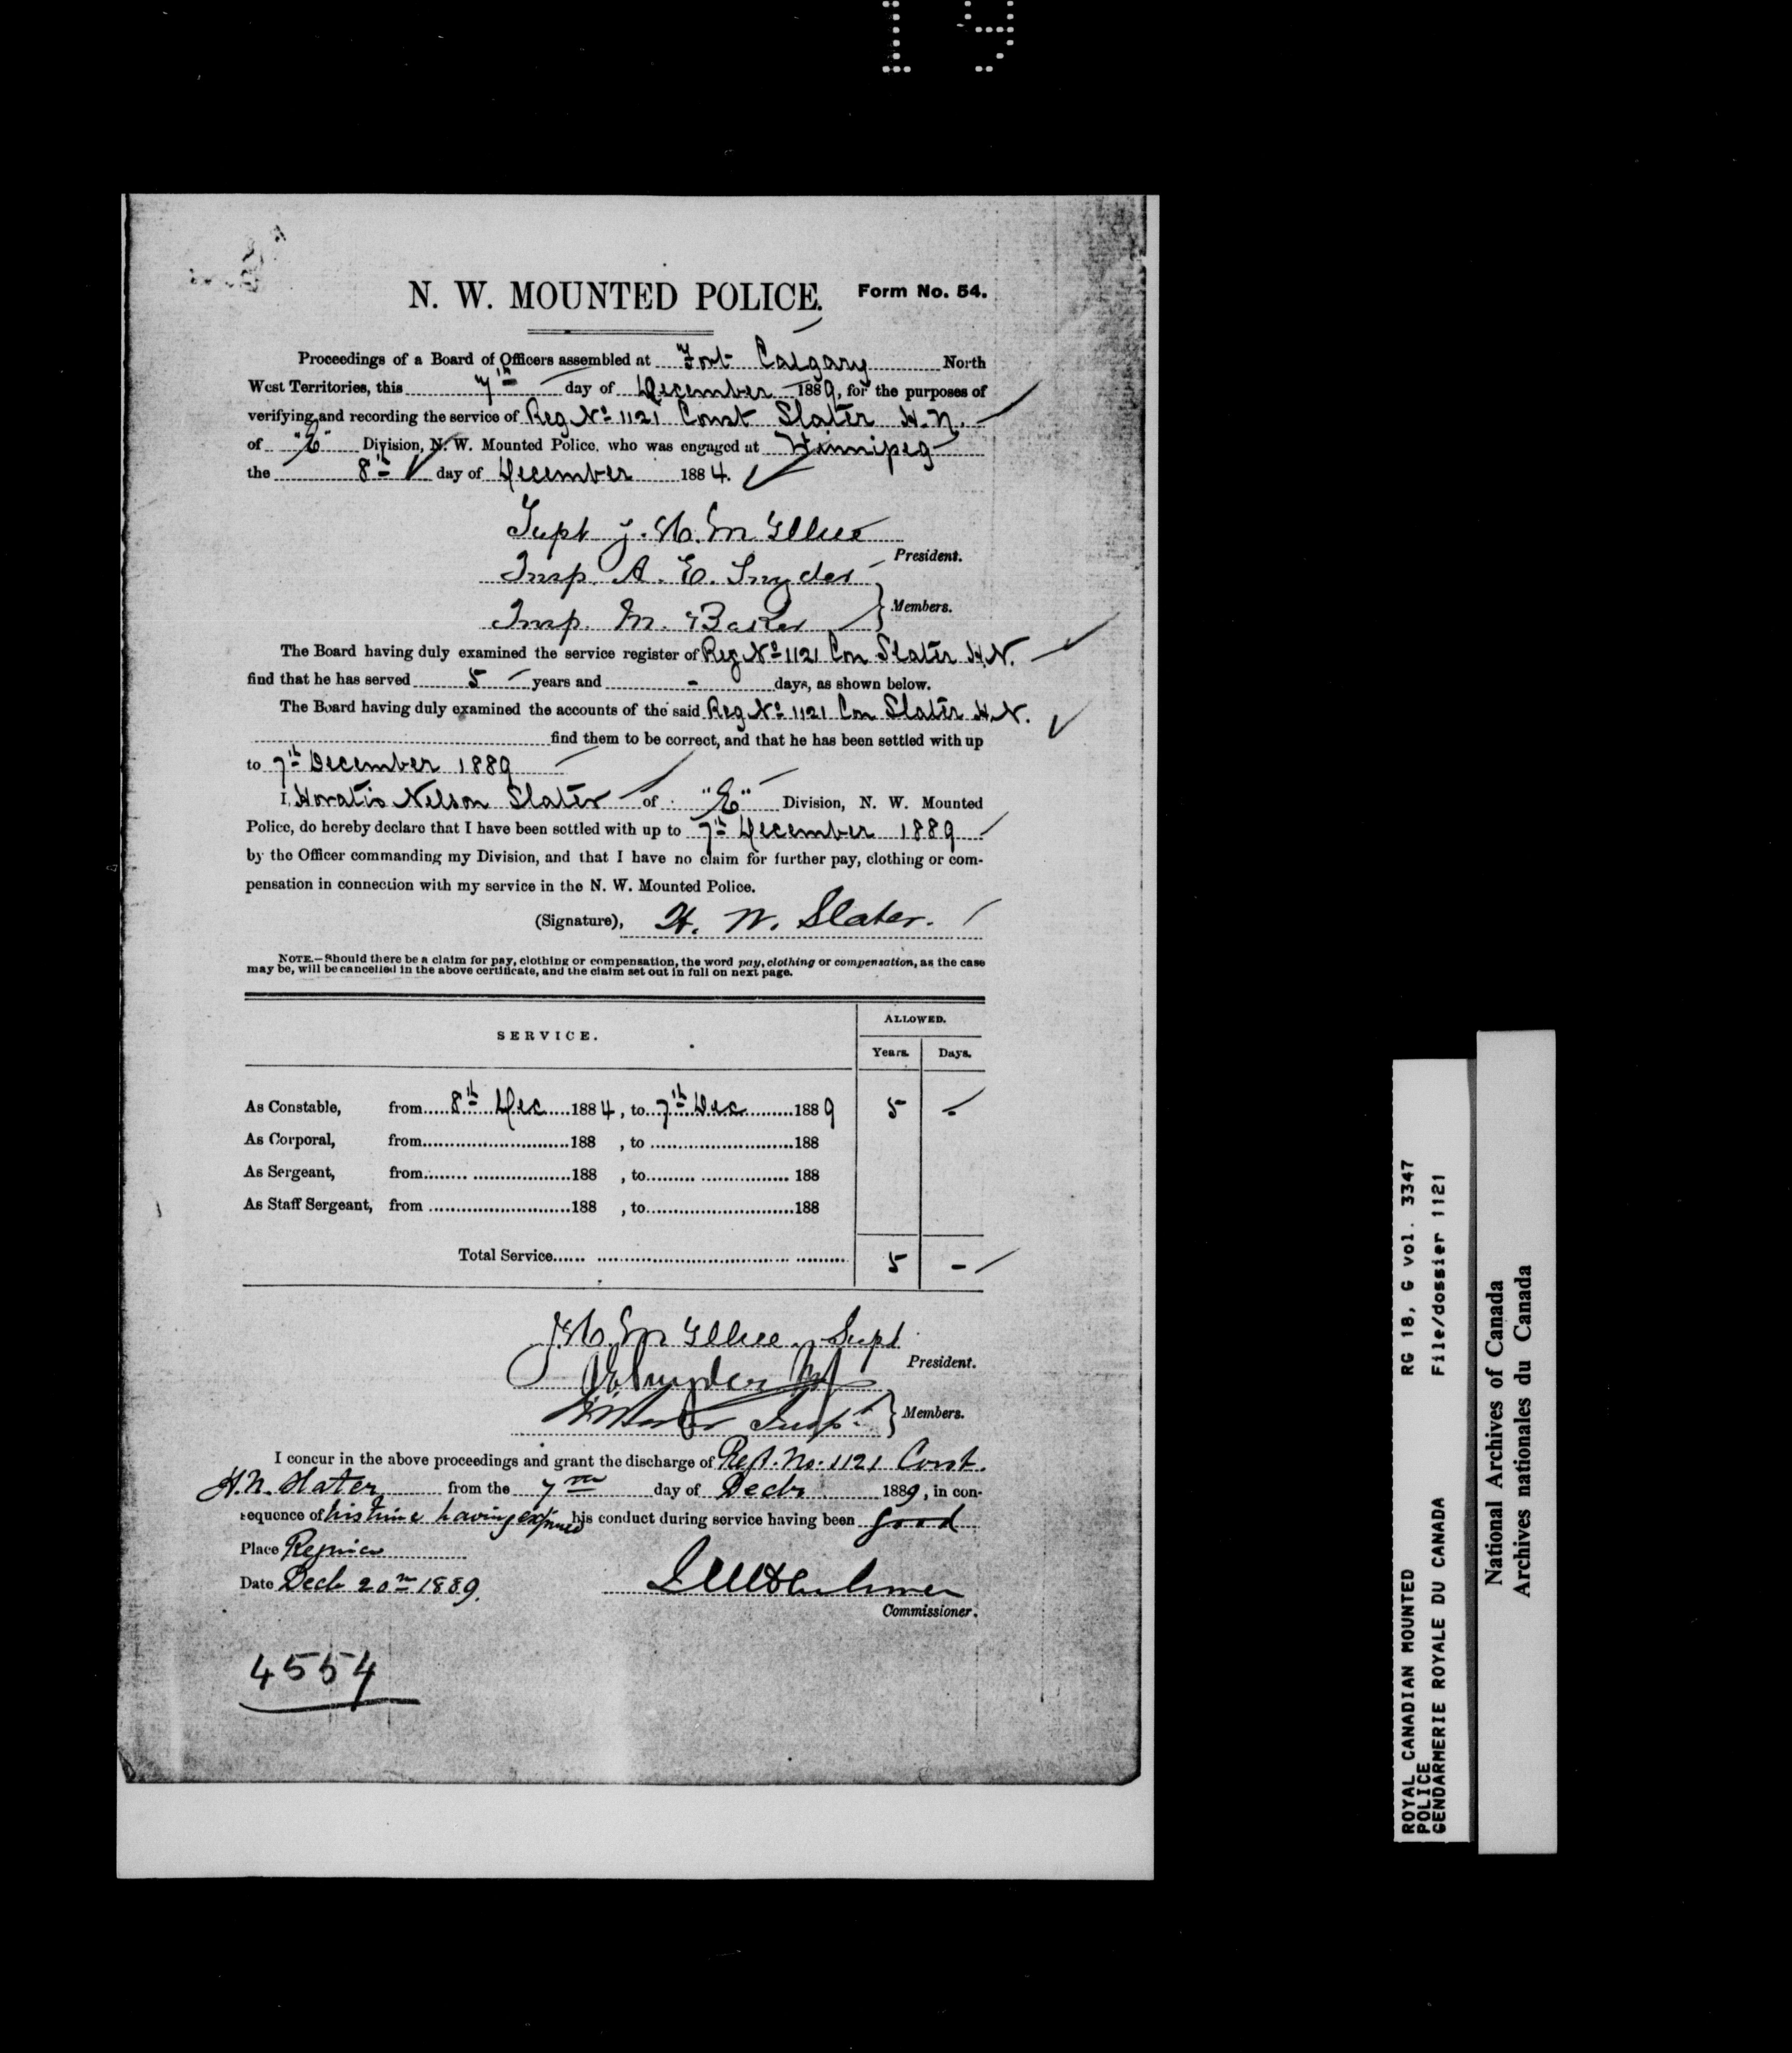 19
N. W. MOUNTED POLICE. Form No. 54.
Proceedings of a Board of Officers assembled at Fort Calgary North
West Territories, this 7th day of December 1889, for the purposes of
verifying and recording the service of Reg No 1121 Const Slater H. N.
of "E" Division, N. W. Mounted Police, who was engaged at Winnipeg
the 8th day of December 1884.
Supt J. H. McIllree
President.
Insp. A. E. Snyder
Insp. M. Baker
} Members.
The Board having duly examined the service register of Reg No 1121 Con Slater H.N.
find that he has served 5 years and - days, as shown below.
The Board having duly examined the accounts of the said Reg No 1121 Con Slater H.N.
find them to be correct, and that he has been settled with up
to 7th December 1889
I, Horatio Nelson Slater of "E" Division, N. W. Mounted
Police, do hereby declare that I have been settled with up to 7th December 1889
by the Officer commanding my Division, and that I have no claim for further pay, clothing or com-
pensation in connection with my service in the N. W. Mounted Police.
(Signature), H. N. Slater.
NOTE.—Should there be a claim for pay, clothing or compensation, the word pay, clothing or compensation, as the case
may be, will be cancelled in the above certificate, and the claim set out in full on next page.
SERVICE. ALLOWED.
Years. Days.
As Constable, from 8th Dec 1884, to 7th Dec 1889 5 -
As Corporal, from 188 , to 188
As Sergeant, from 188 , to 188
As Staff Sergeant, from 188 , to 188
Total Service 5 -
J.H. McIllree Supt
President.
AESnyder
Baker Inspr
} Members.
I concur in the above proceedings and grant the discharge of Regt. No. 1121 Const.
H.N. Slater from the 7th day of Decbr 1889, in con-
sequence of his time having expired his conduct during service having been good
Place Regina
Date Decb 20th 1889.
Commissioner.
4554
ROYAL CANADIAN MOUNTED RG 18, G vol. 3347
POLICE
GENDARMERIE ROYALE DU CANADA File/dossier 1121
National Archives of Canada
Archives nationales du Canada